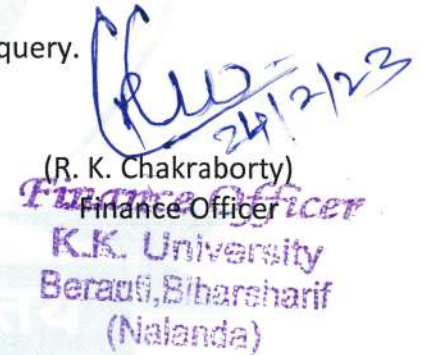 query.
24/2/23
(R. K. Chakraborty)
Finance Officer
Finance Officer
K.K. University
Berauti, Biharsharif
(Nalanda)